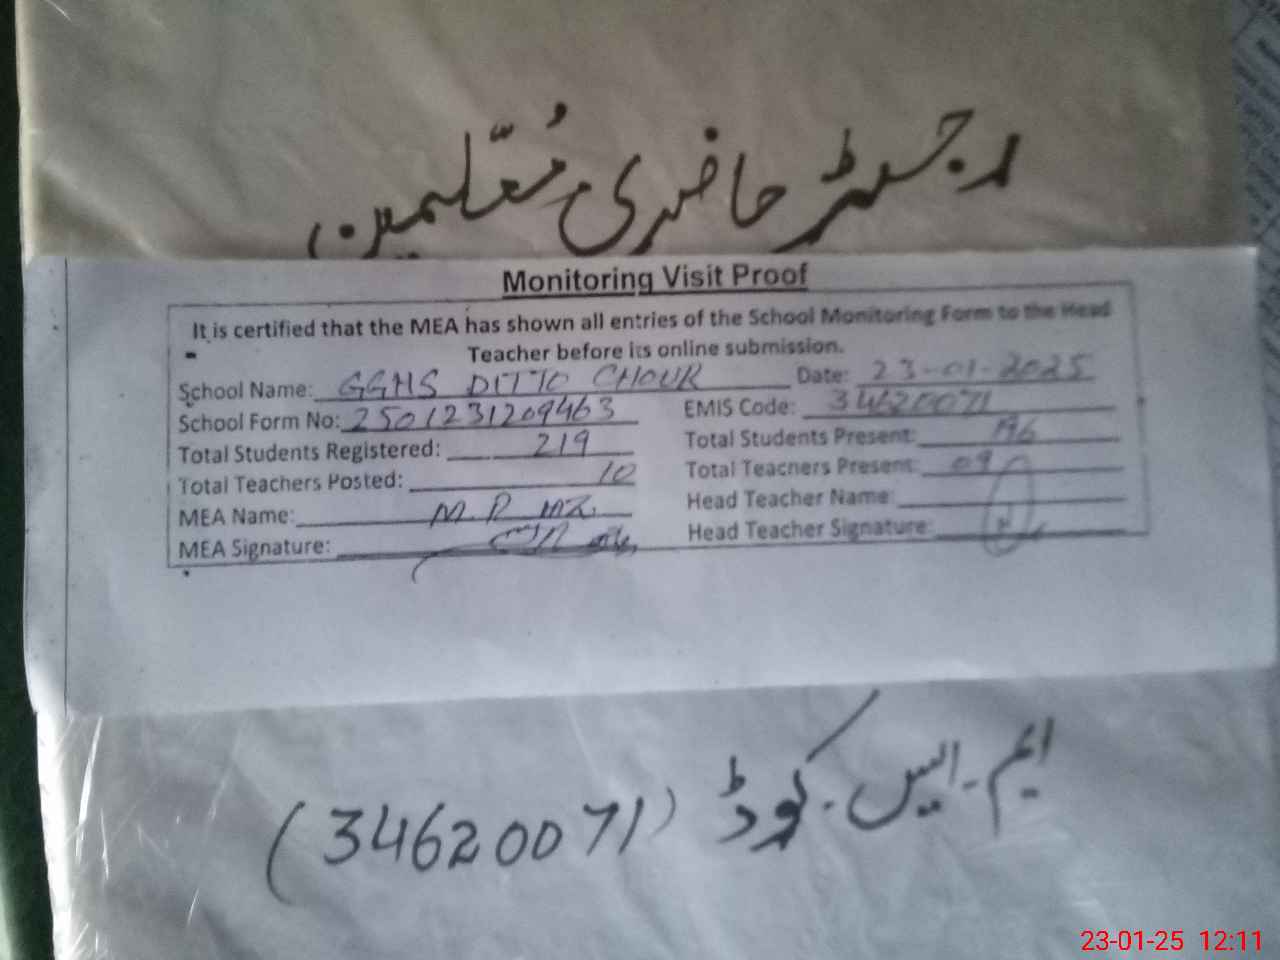 رجسٹر حاضری معلّمین
Monitoring Visit Proof
It is certified that the MEA has shown all entries of the School Monitoring Form to the Head
Teacher before its online submission.
School Name: GGHS DITTO CHOUR Date: 23-01-2025
School Form No: 2501231209463 EMIS Code: 34620071
Total Students Registered: 219 Total Students Present: 196
Total Teachers Posted: 10 Total Teachers Present: 09
MEA Name: Head Teacher Name:
MEA Signature: Head Teacher Signature:
ایم-ایس-کوڈ (34620071)
23-01-25 12:11